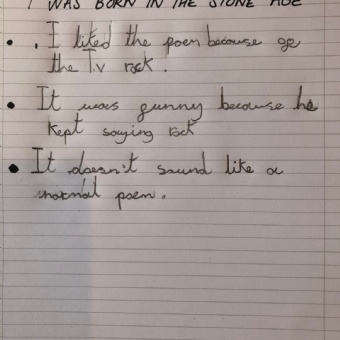 I WAS BORN IN THE STONE AGE
• . I liked the poem because of
the T.v rock .
• It was funny because he
kept saying rock
• It doesn't sound like a
normal poem .